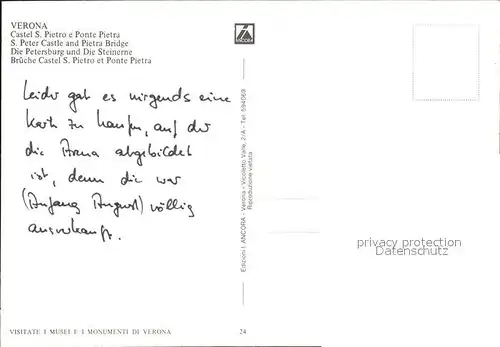 VERONA
Castel S. Pietro e Ponte Pietra
S. Peter Castle and Pietra Bridge
Die Petersburg und Die Steinerne
Brüche Castel S. Pietro et Ponte Pietra
Leider gab es nirgends eine
Karte zu kaufen, auf der
die Arena abgebildet
ist, denn die war
(Anfang August) völlig
ausverkauft.
VISITATE I MUSEI E I MONUMENTI DI VERONA
24
ANCORA
Edizioni I. ANCORA - Verona - Vicoletto Valle, 2/A - Tel. 594069
Riproduzione vietata
privacy protection
Datenschutz